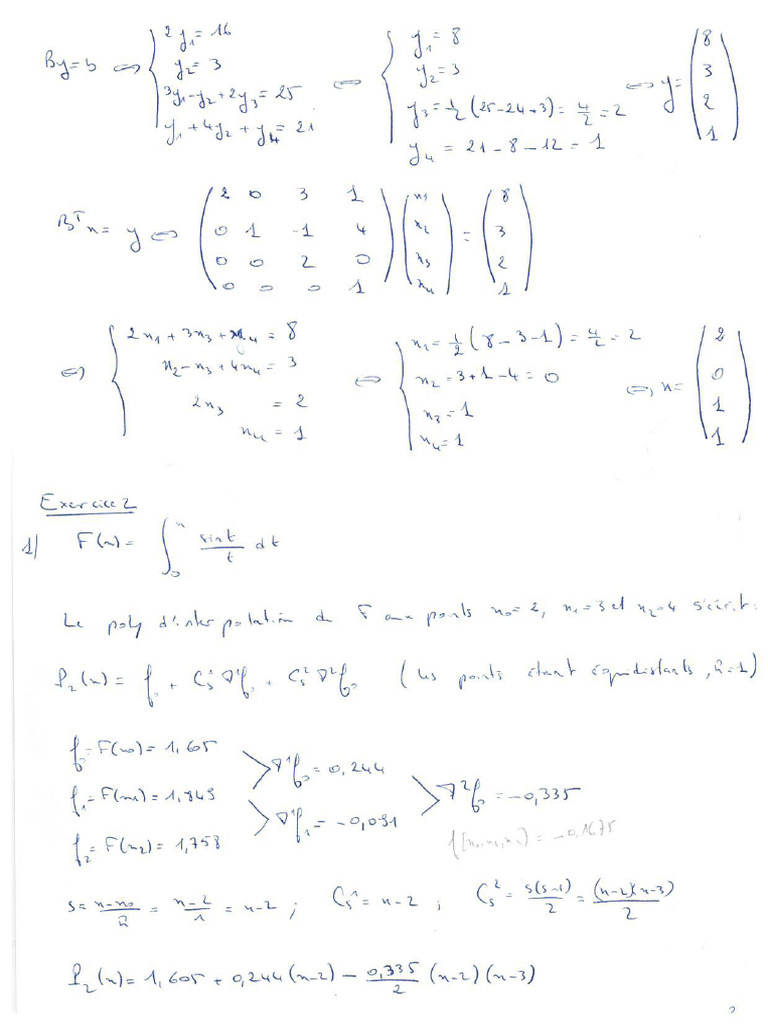 By = b ⟺ { 2y₁ = 16 ; y₂ = 3 ; 3y₁ - y₂ + 2y₃ = 25 ; y₁ + 4y₂ + y₄ = 21 ⟺ { y₁ = 8 ; y₂ = 3 ; y₃ = 1/2 (25 - 24 + 3) = 4/2 = 2 ; y₄ = 21 - 8 - 12 = 1 ⟺ y = (8 3 2 1)
Bᵀx = y ⟺ (2 0 3 1 ; 0 1 -1 4 ; 0 0 2 0 ; 0 0 0 1) (x₁ x₂ x₃ x₄) = (8 3 2 1)
⟺ { 2x₁ + 3x₃ + x₄ = 8 ; x₂ - x₃ + 4x₄ = 3 ; 2x₃ = 2 ; x₄ = 1 ⟺ { x₁ = 1/2 (8 - 3 - 1) = 4/2 = 2 ; x₂ = 3 + 1 - 4 = 0 ; x₃ = 1 ; x₄ = 1 ⟺ x = (2 0 1 1)
Exercice 2
1/ F(x) = ∫₀ˣ sin t / t dt
Le poly d'interpolation de F aux points x₀ = 2, x₁ = 3 et x₂ = 4 s'écrit:
P₂(x) = f₀ + Cₛ¹ ∇¹f₀ + Cₛ² ∇²f₀ (les points étant équidistants, h = 1)
f₀ = F(x₀) = 1,605
∇¹f₀ = 0,244
f₁ = F(x₁) = 1,849 ∇²f₀ = -0,335
∇¹f₁ = -0,091
f₂ = F(x₂) = 1,758 f[x₀,x₁,x₂] = -0,1675
s = (x - x₀)/h = (x - 2)/1 = x - 2 ; Cₛ¹ = x - 2 ; Cₛ² = s(s-1)/2 = (x-2)(x-3)/2
P₂(x) = 1,605 + 0,244 (x-2) - 0,335/2 (x-2)(x-3)
2